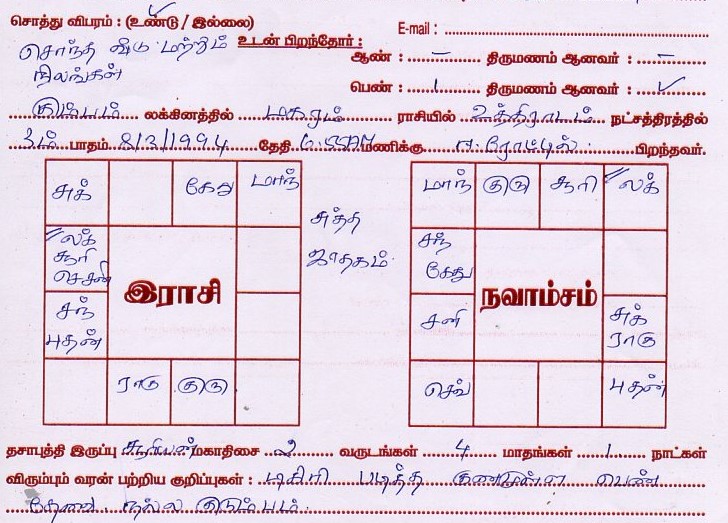 சொத்து விபரம் : (உண்டு / இல்லை) E-mail :
சொந்த வீடு மற்றும் உடன் பிறந்தோர் : ஆண் : – திருமணம் ஆனவர் : –
நிலங்கள்
பெண் : 1 திருமணம் ஆனவர் : ✓
கும்பம் லக்கினத்தில் மகரம் ராசியில் உத்திராடம் நட்சத்திரத்தில்
3ம் பாதம் 8/3/1994 தேதி 6.55AM மணிக்கு ஈரோட்டில் பிறந்தவர்.
சுக் கேது மாந்
லக் சூரி செசனி
சந் புதன்
இராசி
ராகு குரு
சுத்த ஜாதகம்
மாந் குரு சூரி லக்
சந் கேது
சனி சுக் ராகு
நவாம்சம்
செவ் புதன்
தசாபுத்தி இருப்பு சூரியன் மகாதிசை 2 வருடங்கள் 4 மாதங்கள் 1 நாட்கள்
விரும்பும் வரன் பற்றிய குறிப்புகள் : டிகிரி படித்த குணமுள்ள பெண்
தேவை. நல்ல குடும்பம்.